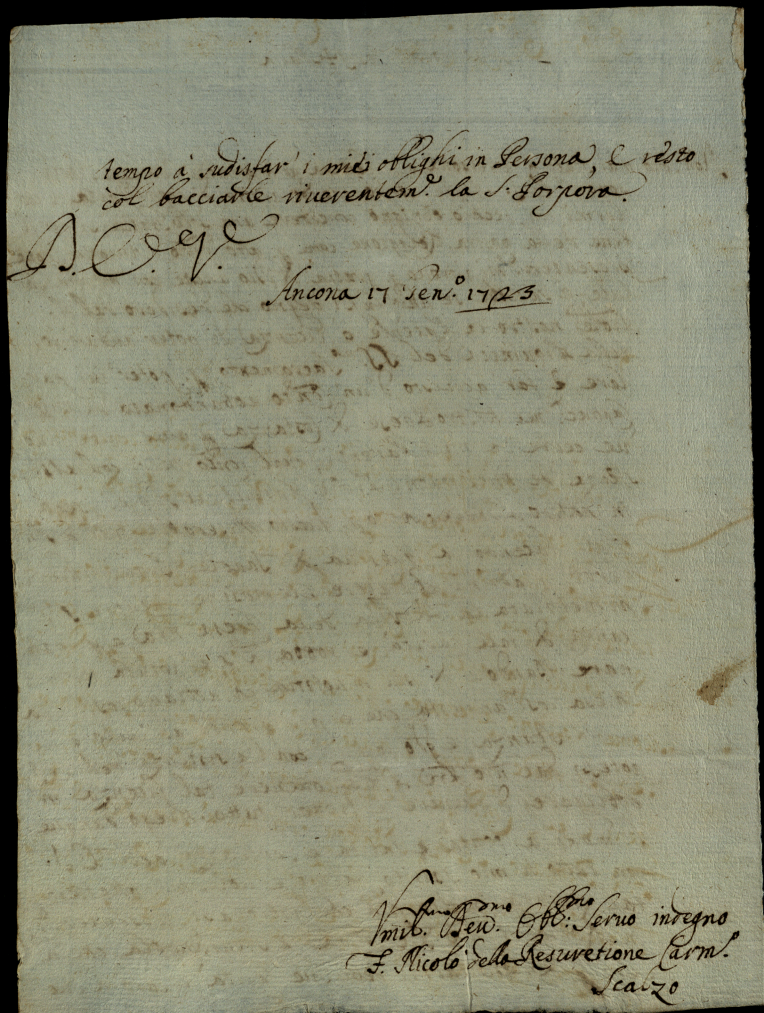 tempo à sudisfar i miei oblighi in Persona, e resto
col bacciarle riverentem.e la S. Porpora.
Ancona 17 Gen.o 1723
Umil.mo Dev.mo Obb.mo: Servo indegno
F. Nicolò della Resuretione Carm.o
Scalzo